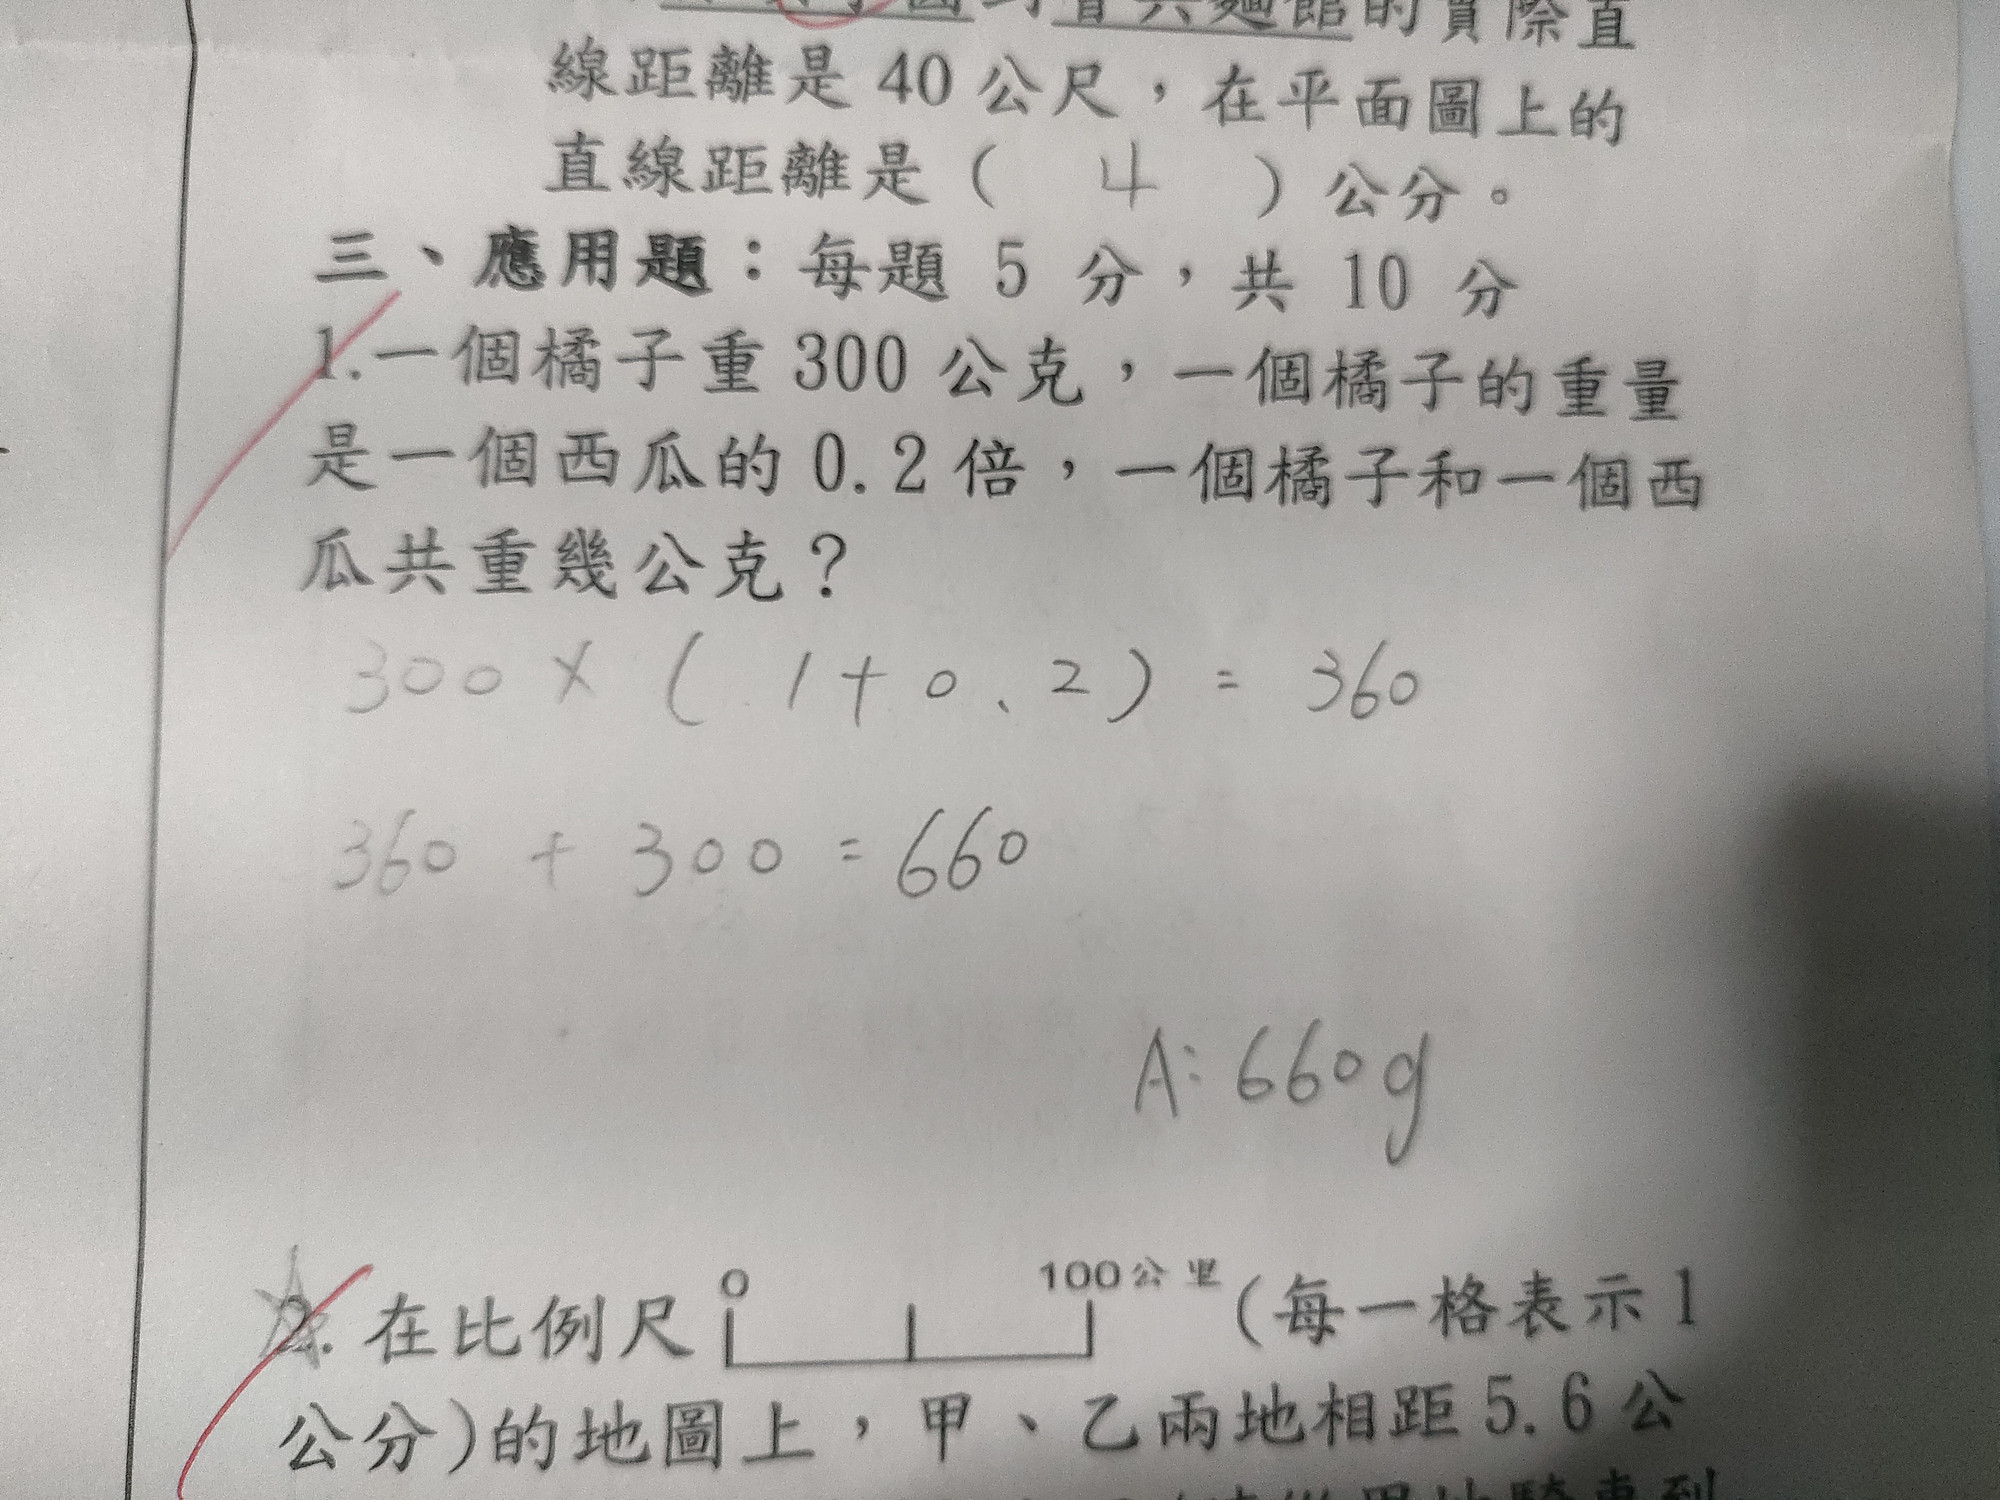 到會賓麵館的實際直
線距離是 40 公尺，在平面圖上的
直線距離是（ 4 ）公分。
三、應用題：每題 5 分，共 10 分
1.一個橘子重 300 公克，一個橘子的重量
是一個西瓜的 0.2 倍，一個橘子和一個西
瓜共重幾公克？
300 × ( 1 + 0.2 ) = 360
360 + 300 = 660
A: 660g
0 100公里
2. 在比例尺 (每一格表示 1
公分)的地圖上，甲、乙兩地相距 5.6 公